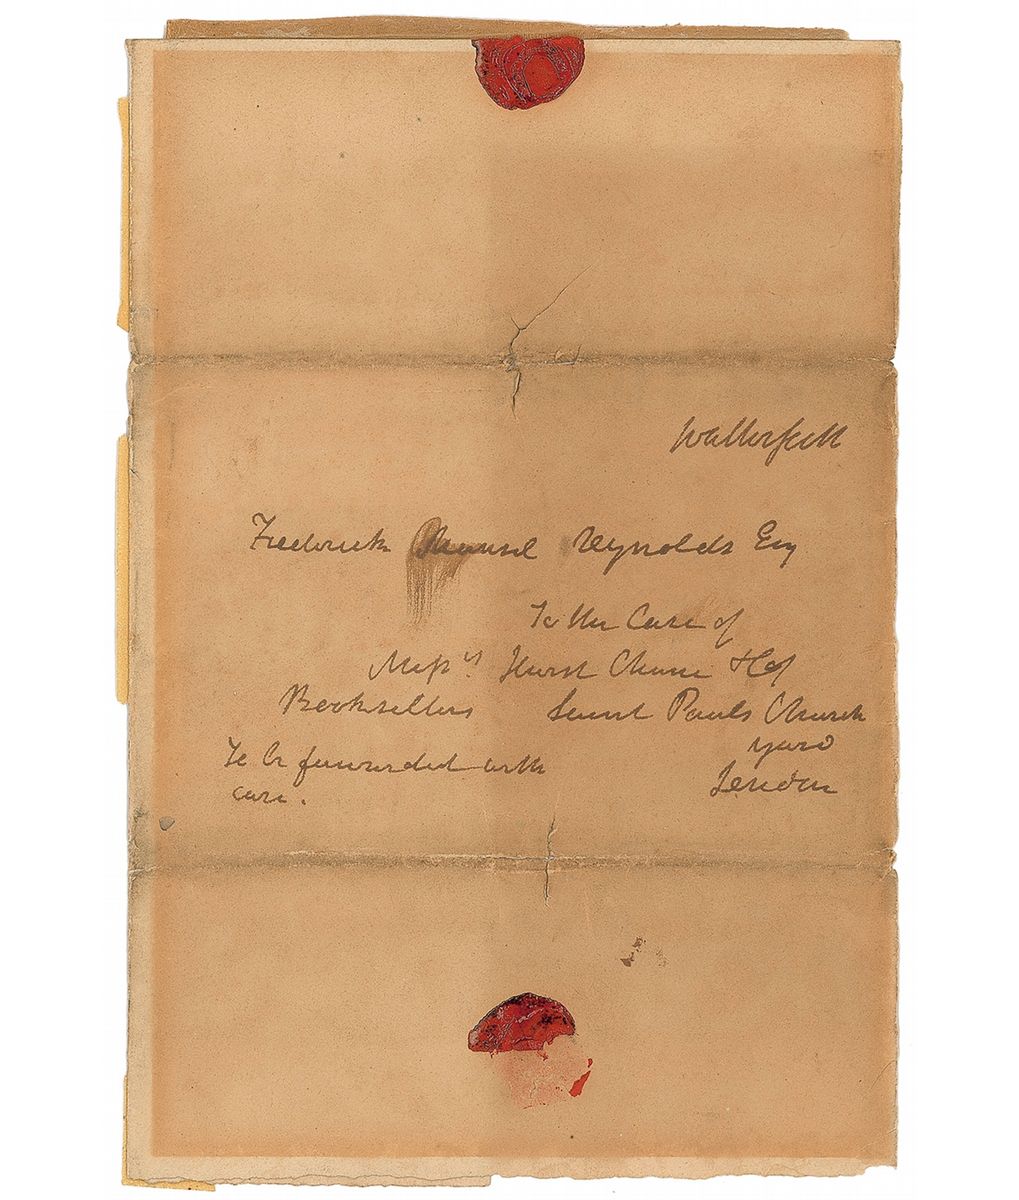 Walter Scott
Frederick Mansel Reynolds Esq
To the Care of
Messrs. Hurst Chance & Co
Booksellers Saint Pauls Church
yard
London
To be forwarded with
care.